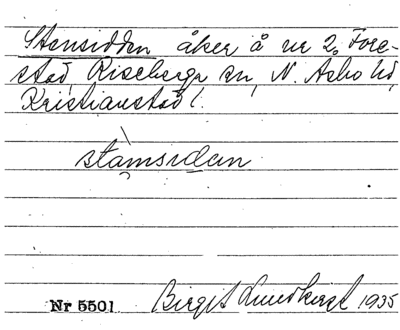 Stensidden åker å nr 2, Före-
stad, Riseberga sn, N. Åsbo hd,
Kristianstad l.
stamsidan
Nr 5501 Birgit Lundkvist 1935